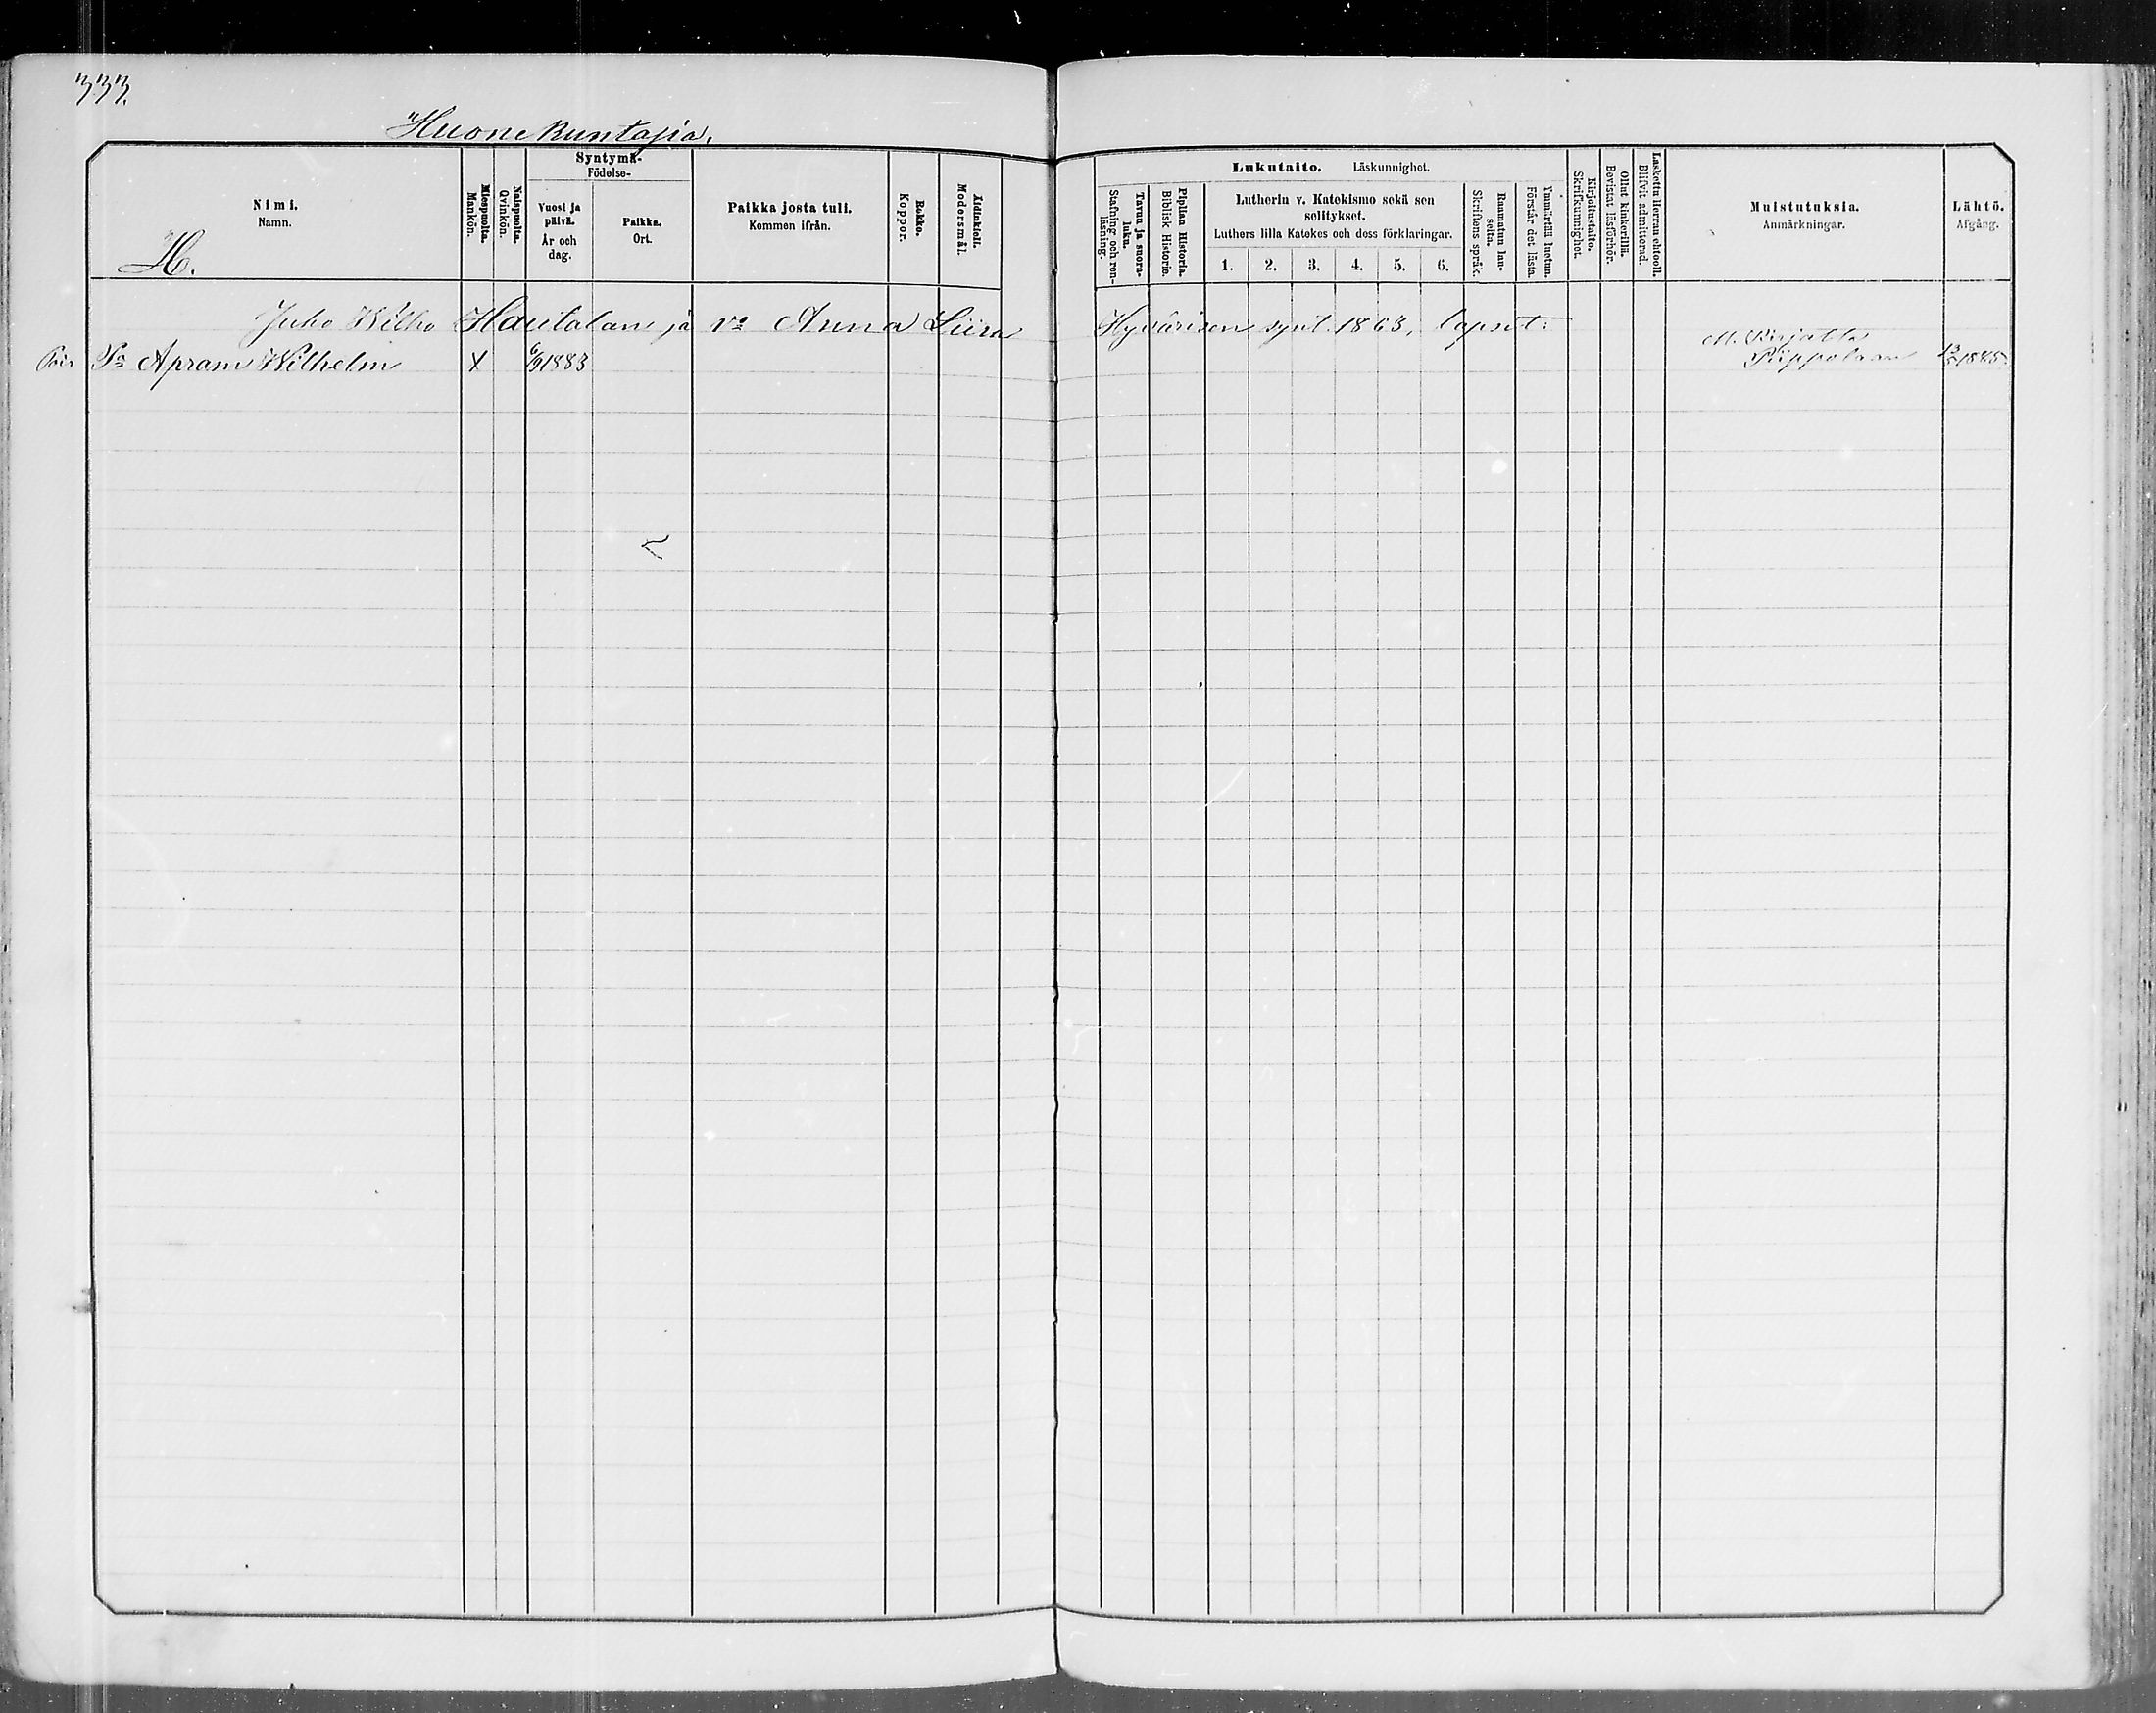 333.
Huonekuntasia.
Nimi.
Namn.
H.
Miespuolta.
Mankön.
Naispuolta.
Qvinkön.
Syntymä-
Födelse-
Vuosi ja
päivä.
År och
dag.
Paikka.
Ort.
Paikka josta tuli.
Kommen ifrån.
Rokko.
Koppor.
Äidinkieli.
Modersmål.
Lukutaito. Läskunnighet.
Tavun ja suora-
luku.
Stafning och ren-
läsning.
Piplian Historia.
Biblisk Historie.
Lutherin v. Katekismo sekä sen
selitykset.
Luthers lilla Katekes och dess förklaringar.
1. 2. 3. 4. 5. 6.
Raamatun lau-
seita.
Skriftens språk.
Ymmärtää luetun.
Förstår det lästa.
Kirjoitustaito.
Skrifkunnighet.
Ollut kinkerillä.
Bevistat läsförhör.
Laskettu Herran ehtooll.
Blifvit admitterad.
Muistutuksia.
Anmärkningar.
Lähtö.
Afgång.
Juho Wilho Hautalan ja vo Anna Liisa Hyvärisen synt. 1863, lapset:
M. Kirjalta
Pois Pa Apram Wilhelm X 6/9 1883 Piippolaan 1885.